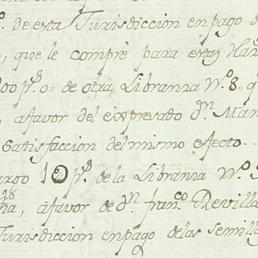 de esta Jurisdiccion en pago d
, que le compré para estas Ha
00 p.s 0 de otra Libranna N.o 8,
, a favor del expresado d.n Man
satisfaccion del mismo efecto.
argo 10 p.s de la Libranna N.o 9
, a favor de d.n Fran.co Revilla
Jurisdiccion en pago de las semill